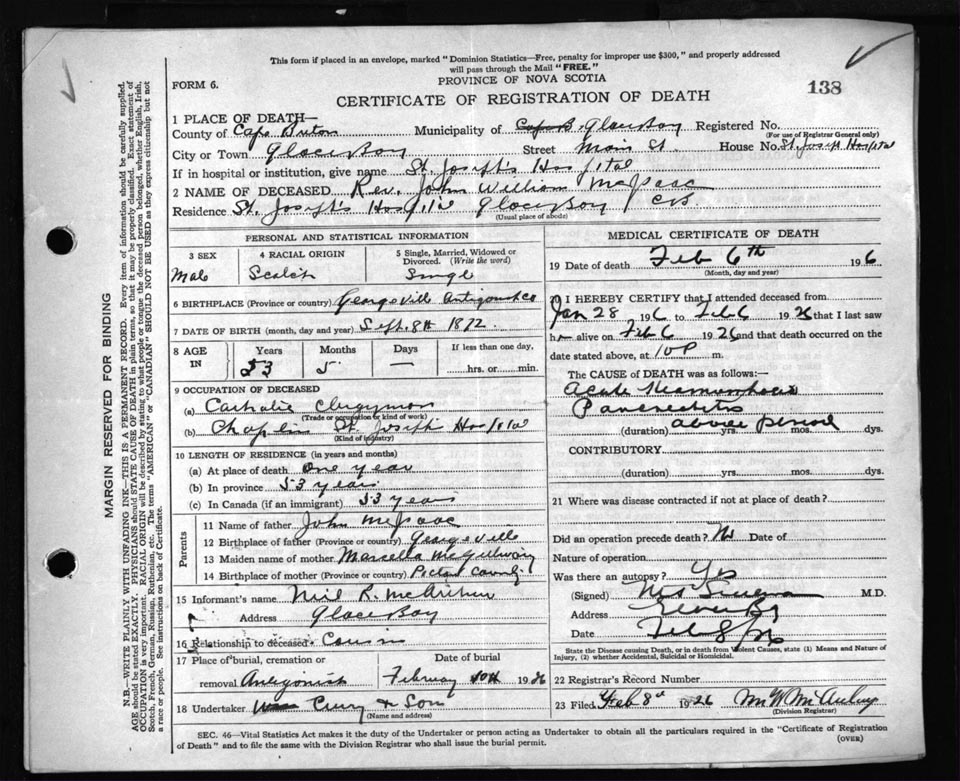 This form if placed in an envelope, marked "Dominion Statistics—Free, penalty for improper use $300," and properly addressed
will pass through the Mail "FREE."
FORM 6.
PROVINCE OF NOVA SCOTIA
138
CERTIFICATE OF REGISTRATION OF DEATH
1 PLACE OF DEATH—
County of Cape Breton Municipality of Glace Bay Registered No.
(For use of Registrar General only)
City or Town Glace Bay Street Main St. House No. St. Joseph Hospital
If in hospital or institution, give name St. Joseph's Hospital
2 NAME OF DECEASED Rev. John William McIsaac
Residence St. Joseph's Hospital Glace Bay C.B.
(Usual place of abode)
PERSONAL AND STATISTICAL INFORMATION
3 SEX 4 RACIAL ORIGIN 5 Single, Married, Widowed or Divorced. (Write the word)
Male Scotch Single
6 BIRTHPLACE (Province or country) Georgeville Antigonish Co
7 DATE OF BIRTH (month, day and year) Sept. 8th 1872
8 AGE IN Years Months Days If less than one day,
53 5 — hrs. or min.
9 OCCUPATION OF DECEASED
(a) Catholic Clergyman
(Trade or occupation or kind of work)
(b) Chaplin St. Joseph Hospital
(Kind of industry)
10 LENGTH OF RESIDENCE (in years and months)
(a) At place of death one year
(b) In province 53 years
(c) In Canada (if an immigrant) 53 years
Parents
11 Name of father John McIsaac
12 Birthplace of father (Province or country) Georgeville
13 Maiden name of mother Marcella
14 Birthplace of mother (Province or country) Pictou County
15 Informant's name Neil R. McArthur
Address Glace Bay
16 Relationship to deceased Cousin
17 Place of burial, cremation or Date of burial
removal Antigonish February 10th 1926
18 Undertaker Curry & Son
(Name and address)
MEDICAL CERTIFICATE OF DEATH
19 Date of death Feb 6th 1926
(Month, day and year)
20 I HEREBY CERTIFY that I attended deceased from
Jan 28 1926 to Feb 6 1926 that I last saw
h alive on Feb 6 1926 and that death occurred on the
date stated above, at 10 P m.
The CAUSE of DEATH was as follows:—
Acute Hemorrhagic
Pancreatitis
(duration) above period yrs. mos. dys.
CONTRIBUTORY
(duration) yrs. mos. dys.
21 Where was disease contracted if not at place of death?
Did an operation precede death? No Date of
Nature of operation
Was there an autopsy? Yes
(Signed) M.D.
Address
Date Feb 8
State the Disease causing Death, or in death from Violent Causes, state (1) Means and Nature of
Injury, (2) whether Accidental, Suicidal or Homicidal.
22 Registrar's Record Number
23 Filed Feb 8th 1926
(Division Registrar)
SEC. 46—Vital Statistics Act makes it the duty of the Undertaker or person acting as Undertaker to obtain all the particulars required in the "Certificate of Registration
of Death" and to file the same with the Division Registrar who shall issue the burial permit.
(OVER)
MARGIN RESERVED FOR BINDING
N.B.—WRITE PLAINLY WITH UNFADING INK—THIS IS A PERMANENT RECORD. Every item of information should be carefully supplied.
AGE should be stated EXACTLY. PHYSICIANS should STATE CAUSE OF DEATH in plain terms, so that it may be properly classified. Exact statement of
OCCUPATION is very important. RACIAL ORIGIN will be described by stating to what people or tongue the deceased person belonged, whether English, Irish,
Scotch, French, German, Russian, Ruthenian, etc. The terms "AMERICAN" or "CANADIAN" SHOULD NOT BE USED as they express citizenship but not
a race or people. See instructions on back of Certificate.